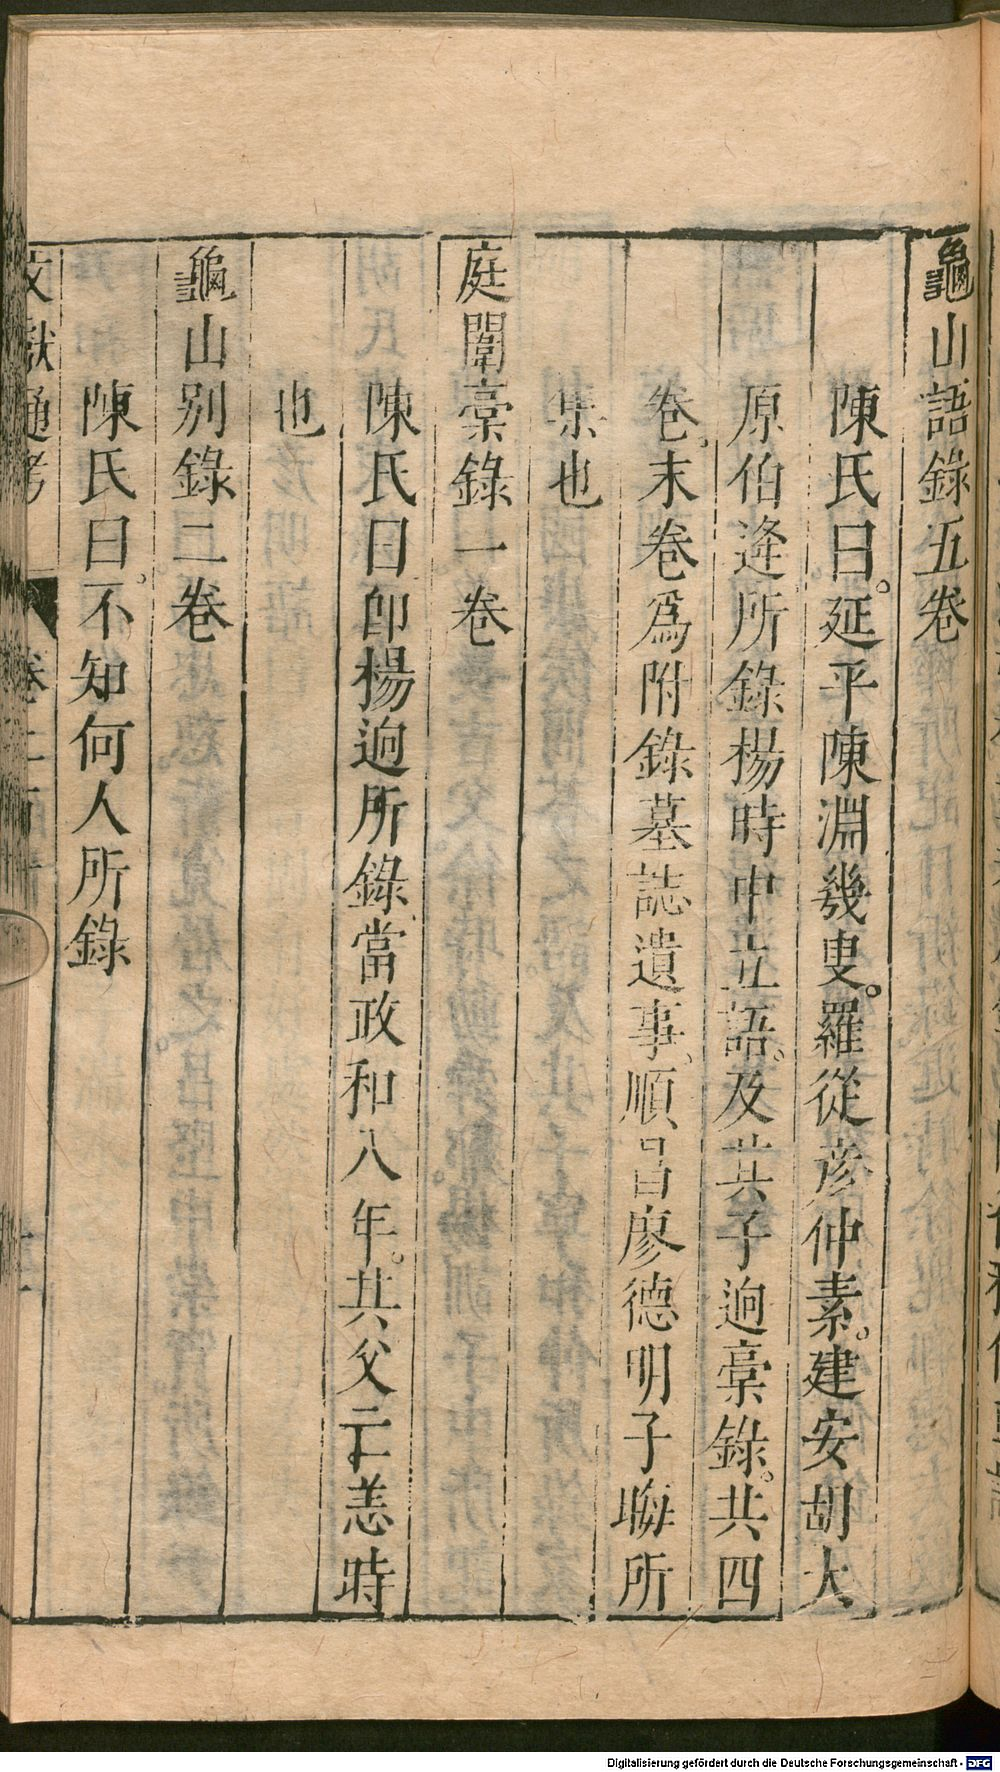 龜山語錄五卷
陳氏曰。延平陳淵幾叟。羅從彥仲素。建安胡大
原伯逄所錄楊時中立語。及其子迥稾錄。共四
卷。末卷爲附錄墓誌遺事。順昌廖德明子晦所
集也
庭闈稾錄一卷
陳氏曰卽楊迥所錄。當政和八年。其父云恙時
也
龜山別錄二卷
陳氏曰。不知何人所錄
文獻通考 卷二百十
Digitalisierung gefördert durch die Deutsche Forschungsgemeinschaft - DFG